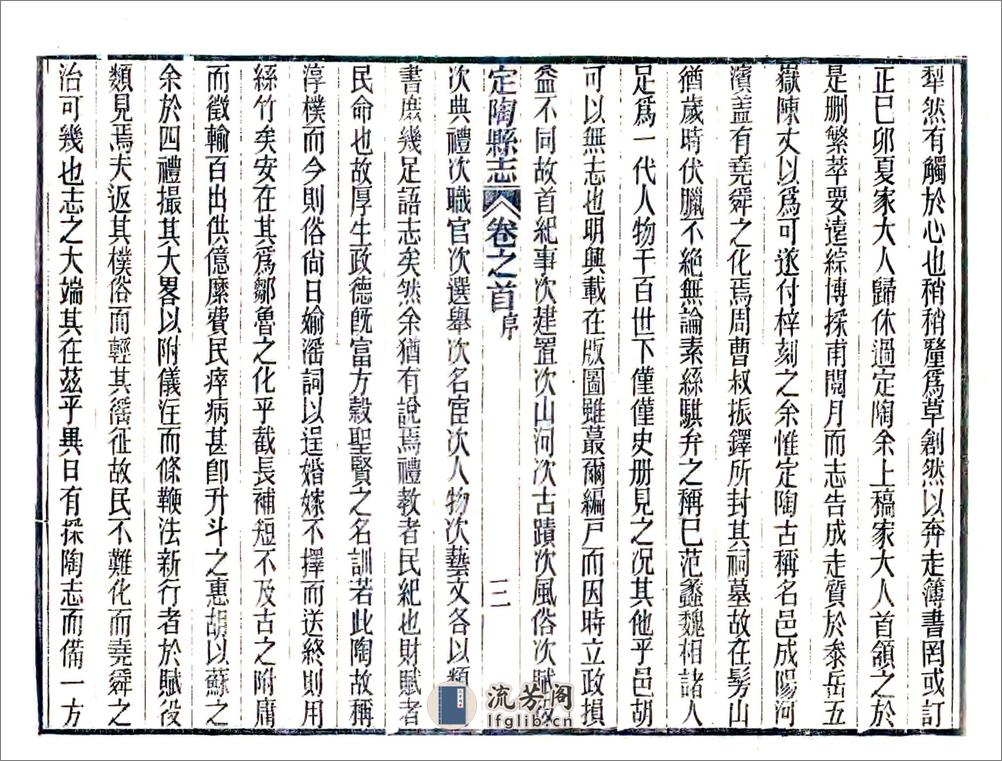 犁然有觸於心也稍稍釐爲草創然以奔走簿書罔或訂
正巳卯夏家大人歸休過定陶余上稿家大人首頷之於
是删繁萃要遠綜博採甫閱月而志告成走質於泰岳五
嶽陳丈以爲可遂付梓刻之余惟定陶古稱名邑成陽河
濱盖有堯舜之化焉周曹叔振鐸所封其祠墓故在髣山
猶歲時伏臘不絶無論素絲騏弁之稱巳范蠡魏相諸人
足爲一代人物千百世下僅僅史册見之况其他乎邑胡
可以無志也明興載在版圖雖蕞爾編戸而因時立政損
益不同故首紀事次建置次山河次古蹟次風俗次賦
定陶縣志 卷之首 序 三
次典禮次職官次選舉次名宦次人物次藝文各以類
書庶幾足語志矣然余猶有說焉禮教者民紀也財賦者
民命也故厚生政德旣富方穀聖賢之名訓若此陶故稱
淳樸而今則俗尙日媮滛詞以逞婚嫁不擇而送終則用
絲竹矣安在其爲鄒魯之化乎截長補短不及古之附庸
而徵輸百出供億縻費民瘁病甚卽升斗之惠胡以蘇之
余於四禮撮其大畧以附儀注而條鞭法新行者於賦役
類見焉夫返其樸俗而輕其徭征故民不難化而堯舜之
治可幾也志之大端其在茲乎異日有採陶志而備一方
流芳阁
lfglib.cn